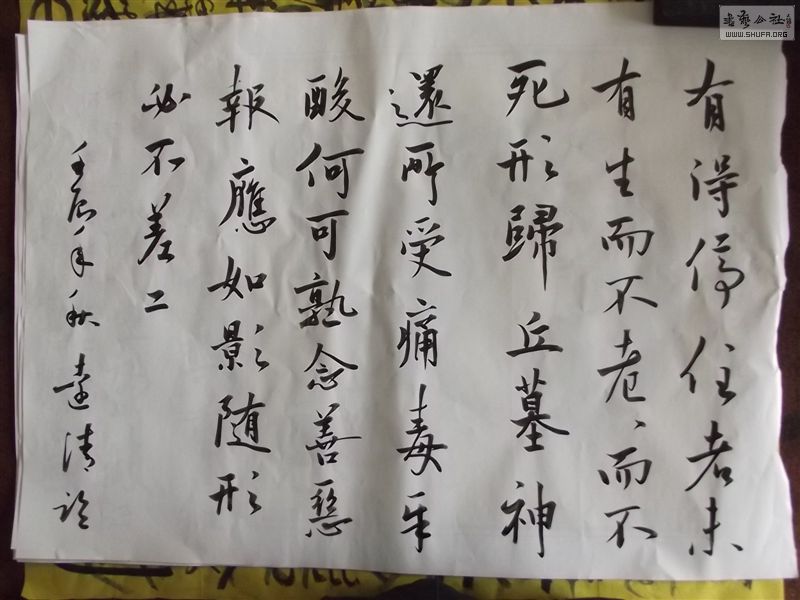 有得停住者未
有生而不老、而不
死形歸丘墓神
還所受痛毒辛
酸何可熟念善惡
報應如影随形
必不差二
壬辰年秋達清
書藝公社
WWW.SHUFA.ORG